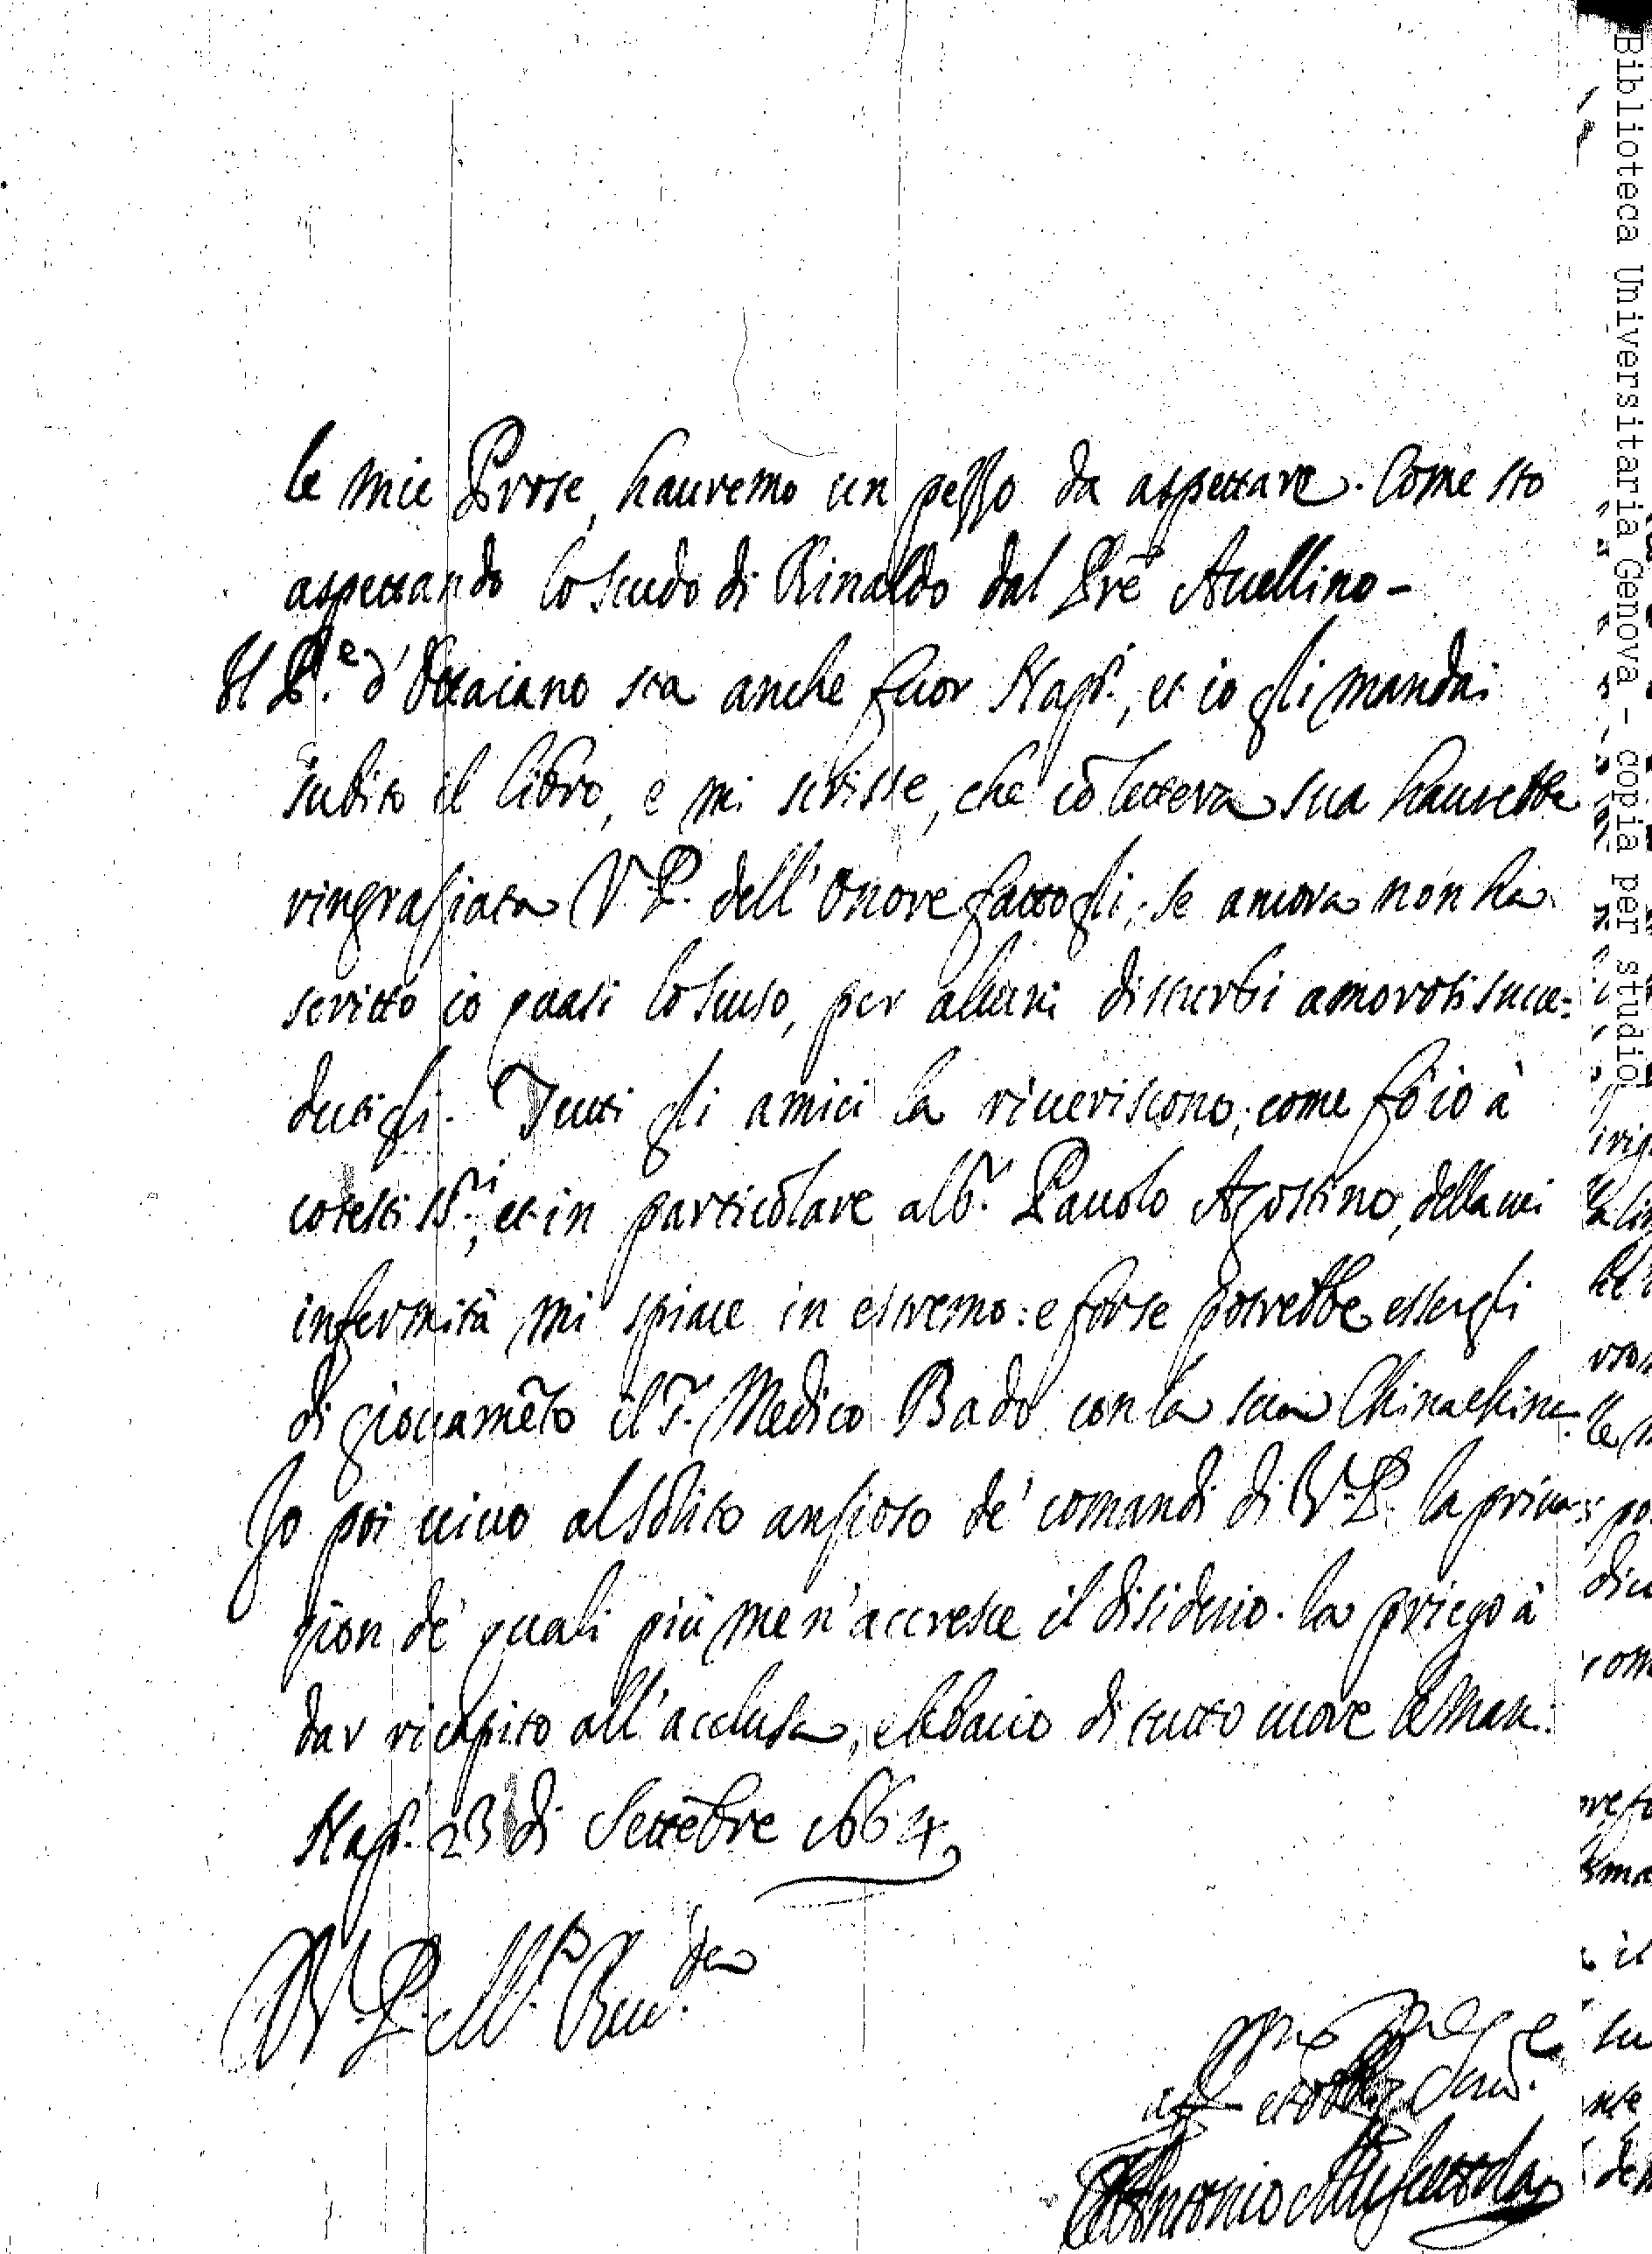 le mie Prose, hauremo un pezzo da aspettare. Come sto
aspettando lo scudo di Rinaldo dal Pre Auellino-
Il P.e d'Ottaiano sta anche fuor Nap., et io gli mandai
subito il libro, e mi scrisse, che cō lettera sua haurebbe
ringraziata V.P. dell'onore fattogli; se ancora non ha
scritto io quasi lo scuso, per alcuni disturbi amorosi succe=
dutigli. Tutti gli amici la riueriscono, come fò io à
cotesti SS.ri, et in particolare al S.r Pauolo Agostino, della cui
infermità mi spiace in estremo: e forse potrebbe essergli
di giouamēto il S.r Medico Bado con la sua Chinachina.
Io poi viuo al solito ansioso de' comandi di V.P. la priua=
zion de' quali più me n'accresce il disiderio. la priego à
dar ricapito all'acclusa, e le bacio di tutto cuore le man.
Nap. 23 di Settēbre 1664
Di V.P. M.R. Reu.da
aff. et obb. Seru.
Antonio Muscettola
Biblioteca Universitaria Genova - copia per studio